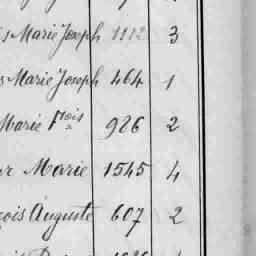 s Marie Joseph 1112 3
s Marie Joseph 464 1
Marie Fois 926 2
Marie 1545 4
çois Auguste 607 2